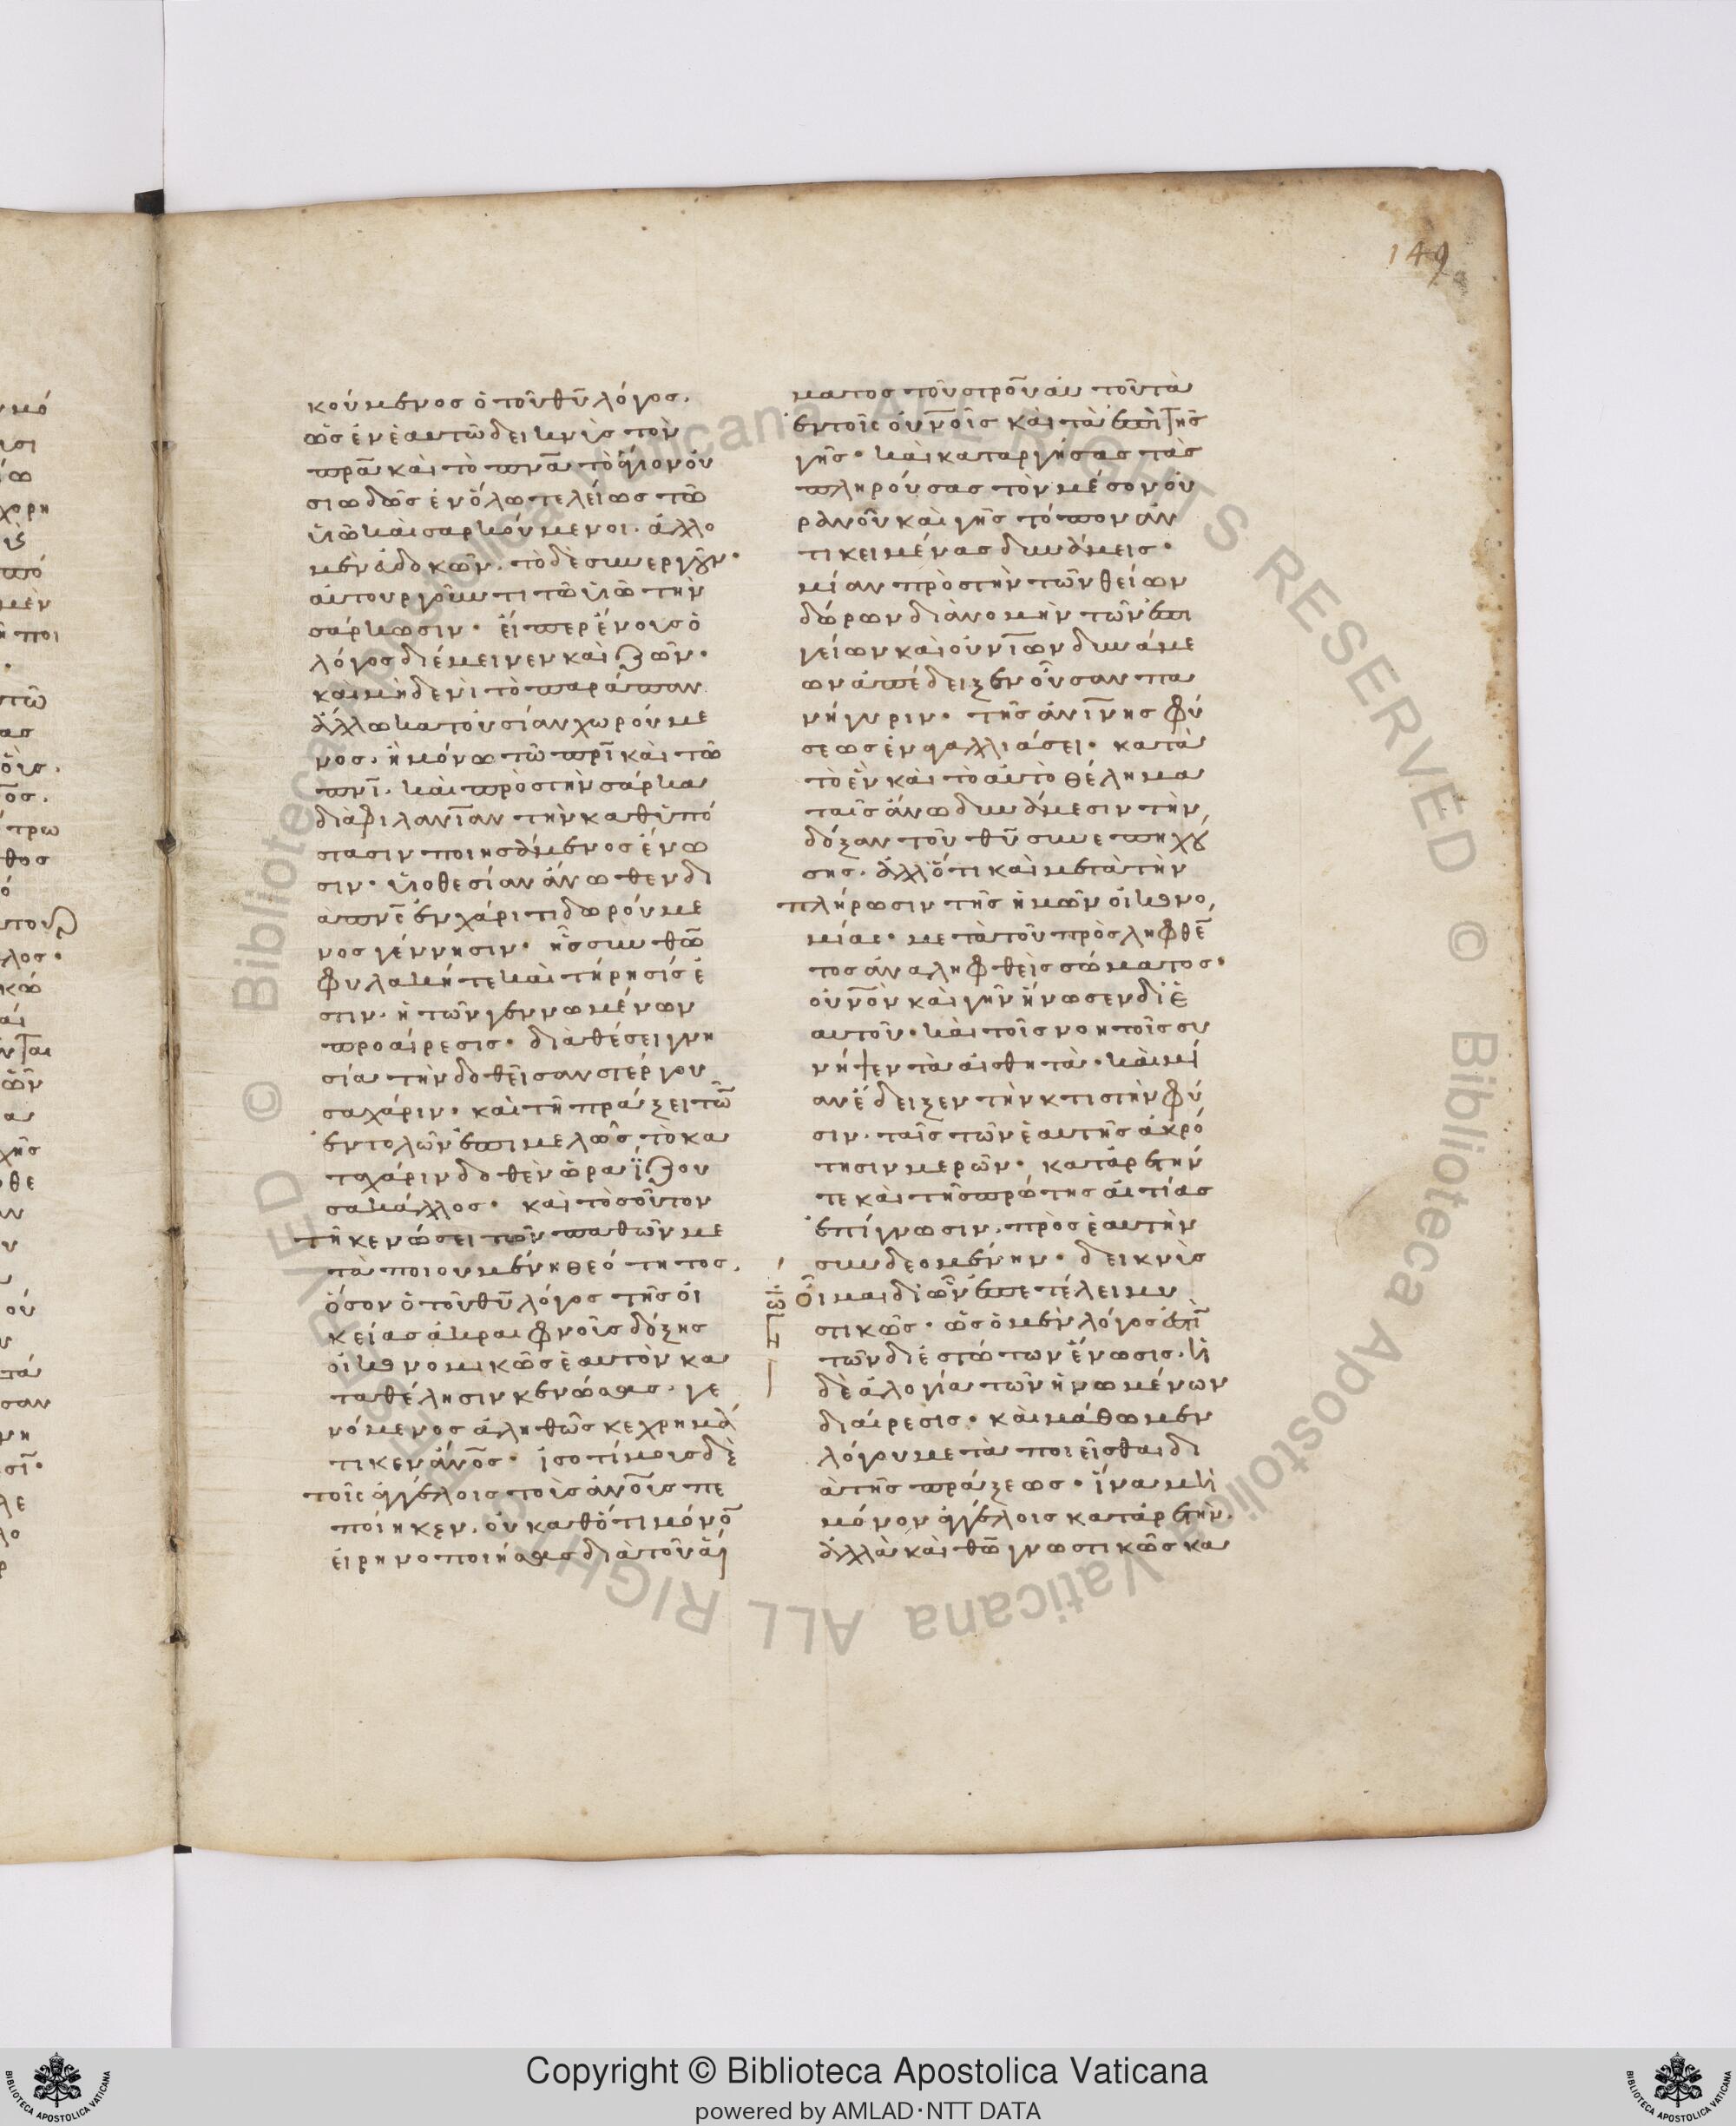 149
κούμενος ὁ τοῦ θῡ λόγος.
ὡς ἐν ἑαυτῶ δεικνὺς τὸν
πρ̅α̅ καὶ τὸ πν̅α̅ τὸ ἅγιον οὐ
σιωδῶς ἐν ὅλω τελείως τῶ
υἱῶ καὶ σαρκούμενοι. ἀλλο
μὲν ἐυδοκῶν. τὸ δὲ συνεργοῦν·
αὐτουργοῦντι τῶ υἱῶ τὴν
σάρκωσιν· εἴπερ ἔννους ὁ
λόγος διέμεινεν καὶ ζῶν·
καὶ μηδενὶ τὸ παράπαν
ἄλλω κατ' οὐσίαν χωρούμε
νος. ἢ μόνω τῶ πρ̅ι̅ καὶ τῶ
πν̅ι̅. καὶ πρὸς τὴν σάρκα
διὰ φιλαν̅ι̅αν τὴν καθ' ὑπό
στασιν ποιησάμενος ἕνω
σιν· υἱοθεσίαν ἄνωθεν δι
ὰ πν̅ς̅ ἐν χάριτι δωρούμε
νος γέννησιν· ἧς σὺν θ̅ω̅
φυλακή τε καὶ τήρησίς ἐ
στιν. ἡ τῶν γεννωμένων
προαίρεσις· διαθέσει γνη
σία τὴν δοθεῖσαν στέργου
σα χάριν· καὶ τῆ πράξει τῶν
ἐντολῶν ἐπιμελῶς τὸ κα
τὰ χάριν δοθὲν ὡραΐζου
σα κάλλος· καὶ τοσοῦτον
τῆ κενώσει τῶν παθῶν με
ταποιουμένη θεότητος.
ὅσον ὁ τοῦ θ̅υ̅ λόγος τῆς οἰ
κείας ἀκραιφνοῦς δόξης
οἰκονομικῶς ἑαυτὸν κα
τὰ θέλησιν κενώσας. γε
νόμενος ἀληθῶς κεχρημά
τικεν ἄν̅ο̅ς· ἰσοτίμους δὲ
τοῖς ἀγγέλοις τοὺς ἀν̅ο̅υς πε
ποίηκεν. οὐ καθότι μόνον
εἰρηνοποιήσας διὰ τοῦ αἵ
ματος τοῦ στρ̅ο̅υ αὐτοῦ τὰ
ἐν τοῖς οὐν̅ο̅ῖς καὶ τὰ ἐπὶ τῆς
γῆς· καὶ καταργήσας τὰς
πληρούσας τὸν μέσον οὐ
ρανοῦ καὶ γῆς τόπον ἀν
τικειμένας δυνάμεις·
μίαν πρὸς τὴν τῶν θείων
δώρων διανομὴν τῶν ἐπι
γείων καὶ οὐν̅ι̅ων δυνάμε
ων ἀπέδειξεν οὖσαν πα
νήγυριν· τῆς ἀν̅ι̅νης φύ
σεως ἐν ἀγαλλιάσει· κατὰ
τὸ ἓν καὶ τὸ αὐτὸ θέλημα
ταῖς ἄνω δυνάμεσιν τὴν
δόξαν τοῦ θ̅υ̅ συνεπηχού
σης. ἀλλ' ὅτι καὶ μετὰ τὴν
πλήρωσιν τῆς ἡμῶν οἰκονο
μίας· μετὰ τοῦ προσληφθέν
τος ἀναληφθεὶς σώματος·
οὐν̅ο̅ν καὶ γῆν ἥνωσεν δι' ἑ
αυτοῦ· καὶ τοῖς νοητοῖς συ
νῆψεν τὰ αἰσθητὰ· καὶ μί
αν ἔδειξεν τὴν κτιστὴν φύ
σιν. ταῖς τῶν ἑαυτῆς ἀκρό
τησιν μερῶν· κατ' ἀρετήν
τε καὶ τῆς πρώτης αἰτίας
ἐπίγνωσιν. πρὸς ἑαυτὴν
συνδεομένην· δεικνὺς
οἶμαι δι' ὧν ἐπετέλει μυ
στικῶς· ὡς ὁ μὲν λόγος ἐπὶ
τῶν διεστώτων ἕνωσις. ἡ
δὲ ἀλογία τῶν ἡνωμένων
διαίρεσις· καὶ μάθωμεν
λόγου μεταποιεῖσθαι δι
ὰ τῆς πράξεως· ἵνα μὴ
μόνον ἀγγέλοις κατ' ἀρετὴν.
ἀλλὰ καὶ θ̅ω̅ γνωστικῶς κα
Copyright © Biblioteca Apostolica Vaticana
powered by AMLAD·NTT DATA